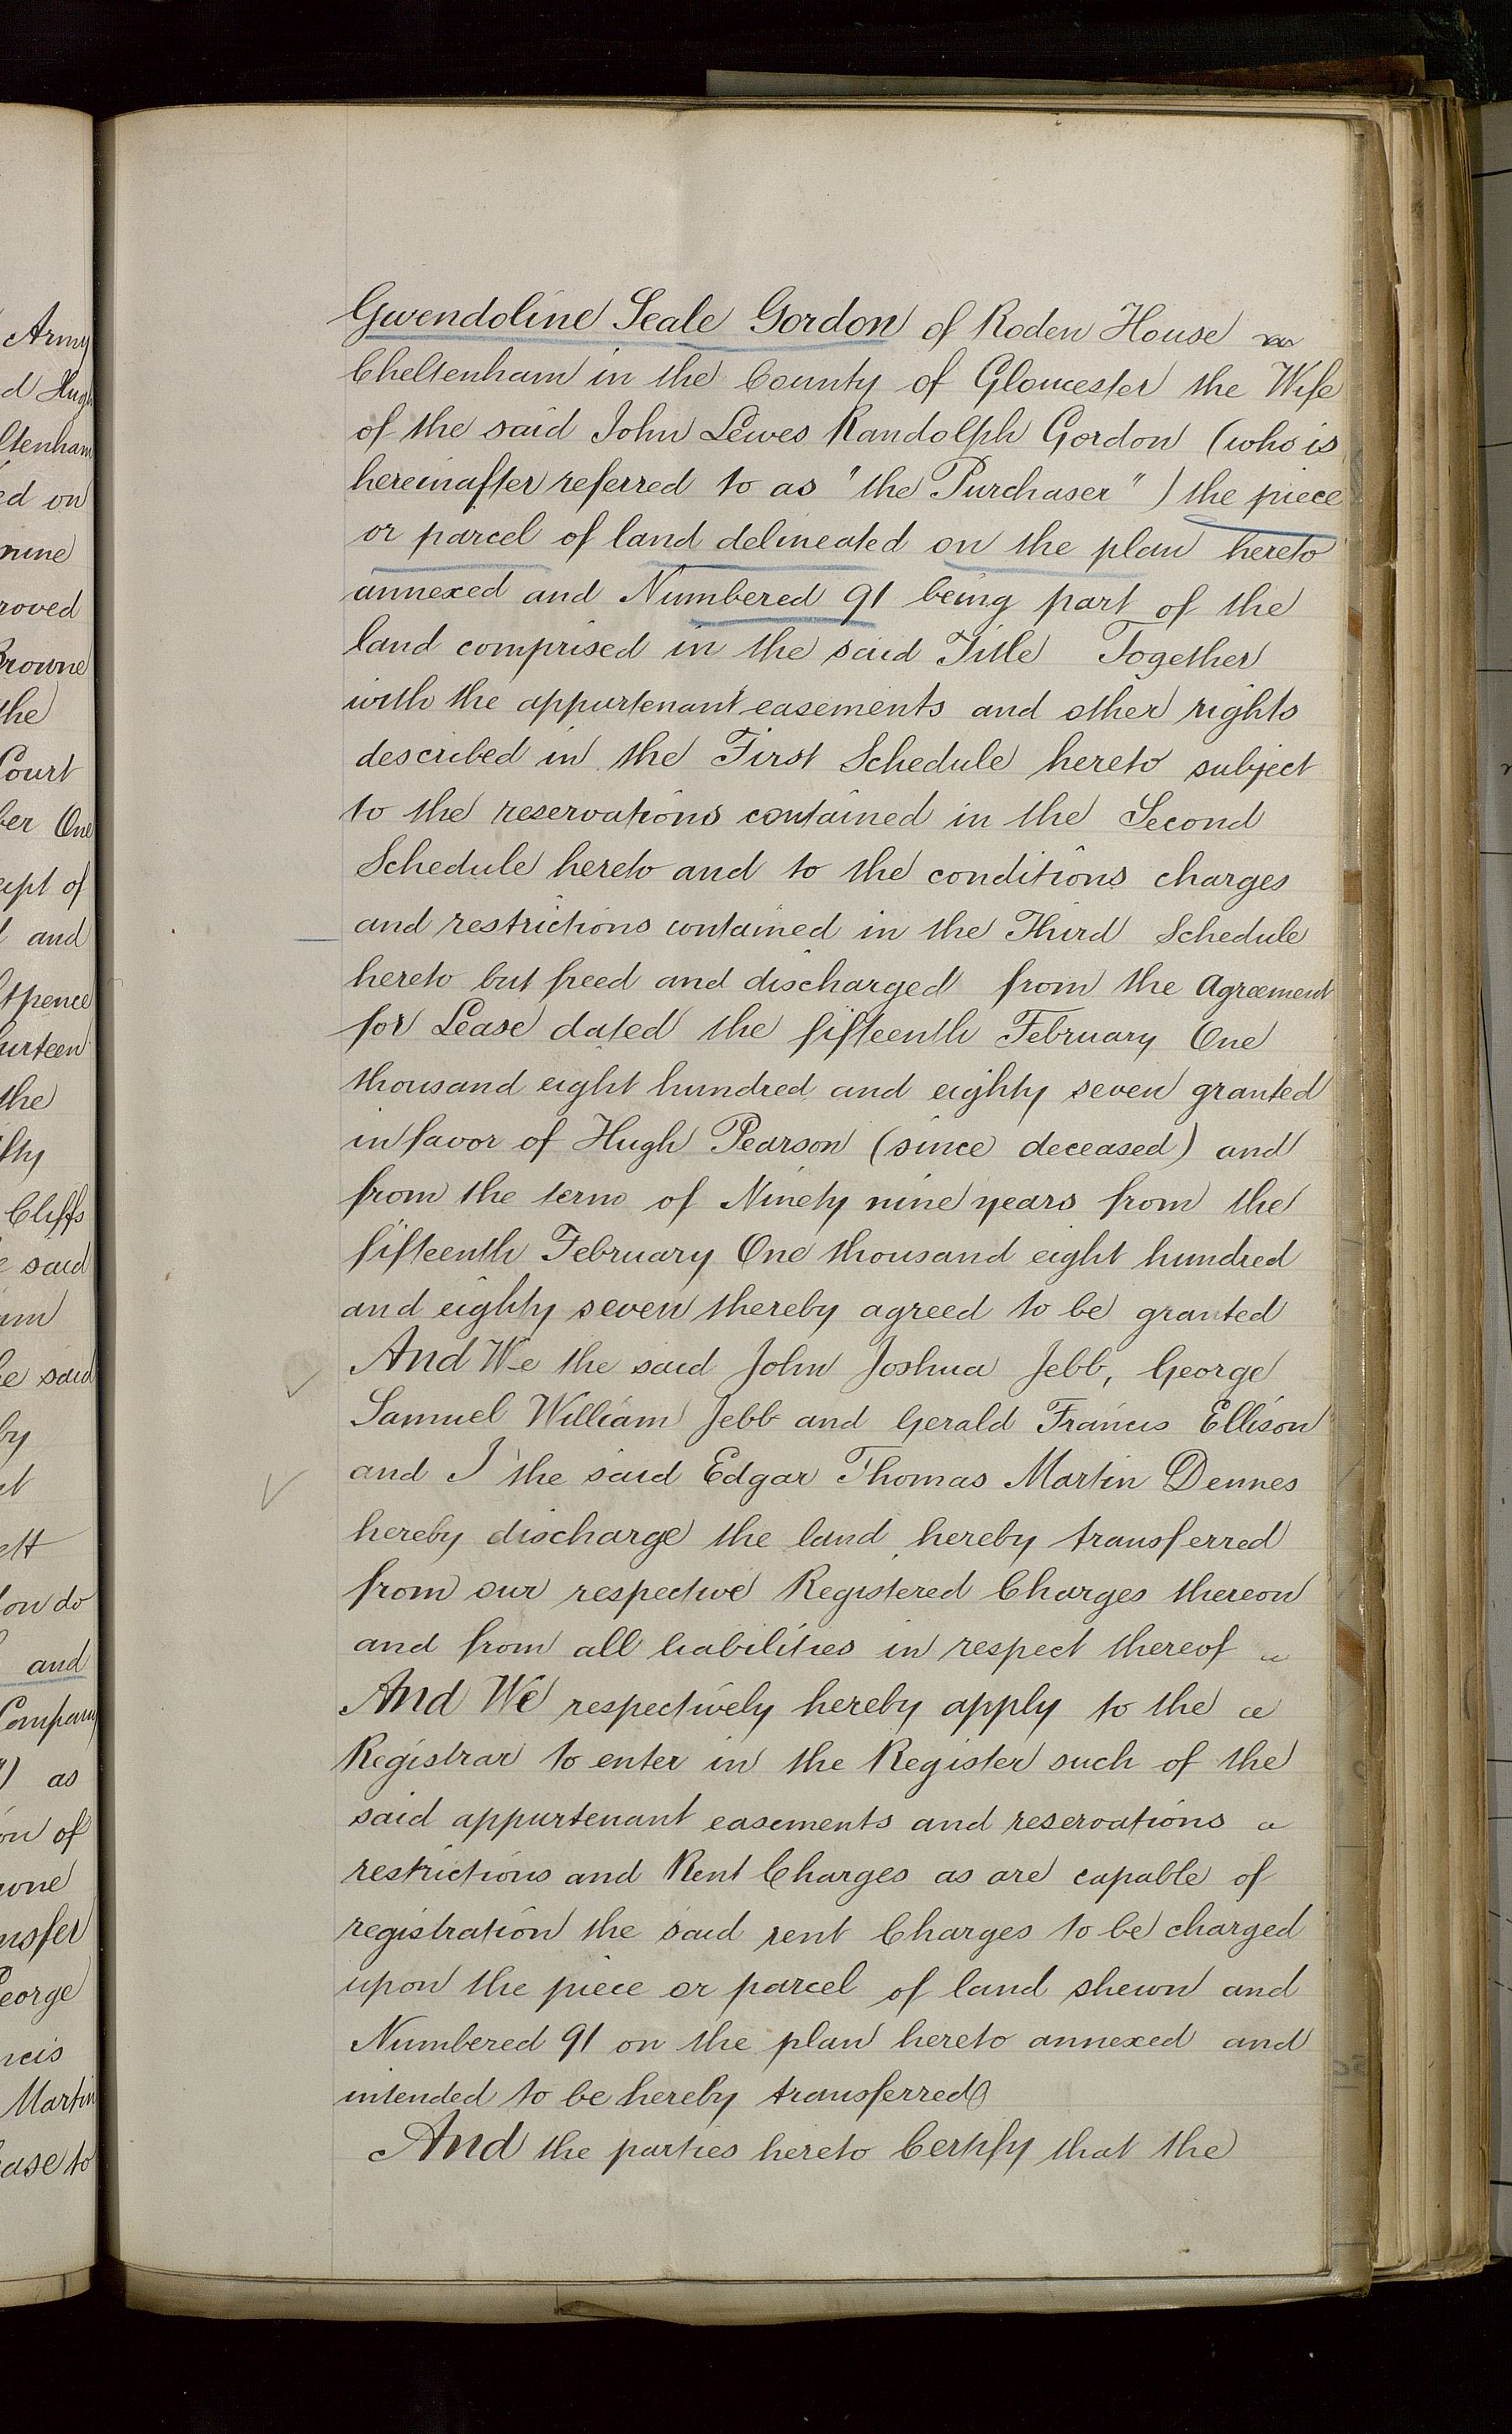 Army
d Hugh
ltenham
ed on
nine
roved
Browne
the
Court
ber One
eipt of
and
tpence
urteen
the
fty
Cliffs
e said
um
he said
by
et
ett
don do
and
Company
") as
on of
wne
nsfer
George
ncis
Martin
ease to
Gwendoline Seale Gordon of Roden House
Cheltenham in the County of Gloucester the Wife
of the said John Lewes Randolph Gordon (who is
hereinafter referred to as "the Purchaser") the piece
or parcel of land delineated on the plan hereto
annexed and Numbered 91 being part of the
land comprised in the said Title Together
with the appurtenant easements and other rights
described in the First Schedule hereto subject
to the reservations contained in the Second
Schedule hereto and to the conditions charges
and restrictions contained in the Third Schedule
hereto but freed and discharged from the Agreement
for Lease dated the fifteenth February One
thousand eight hundred and eighty seven granted
in favor of Hugh Pearson (since deceased) and
from the term of Ninety nine years from the
fifteenth February One thousand eight hundred
and eighty seven thereby agreed to be granted
And We the said John Joshua Jebb, George
Samuel William Jebb and Gerald Francis Ellison
and I the said Edgar Thomas Martin Dennes
hereby discharge the land hereby transferred
from our respective Registered Charges thereon
and from all liabilities in respect thereof
And We respectively hereby apply to the
Registrar to enter in the Register such of the
said appurtenant easements and reservations
restrictions and Rent Charges as are capable of
registration the said rent Charges to be charged
upon the piece or parcel of land shewn and
Numbered 91 on the plan hereto annexed and
intended to be hereby transferred
And the parties hereto Certify that the